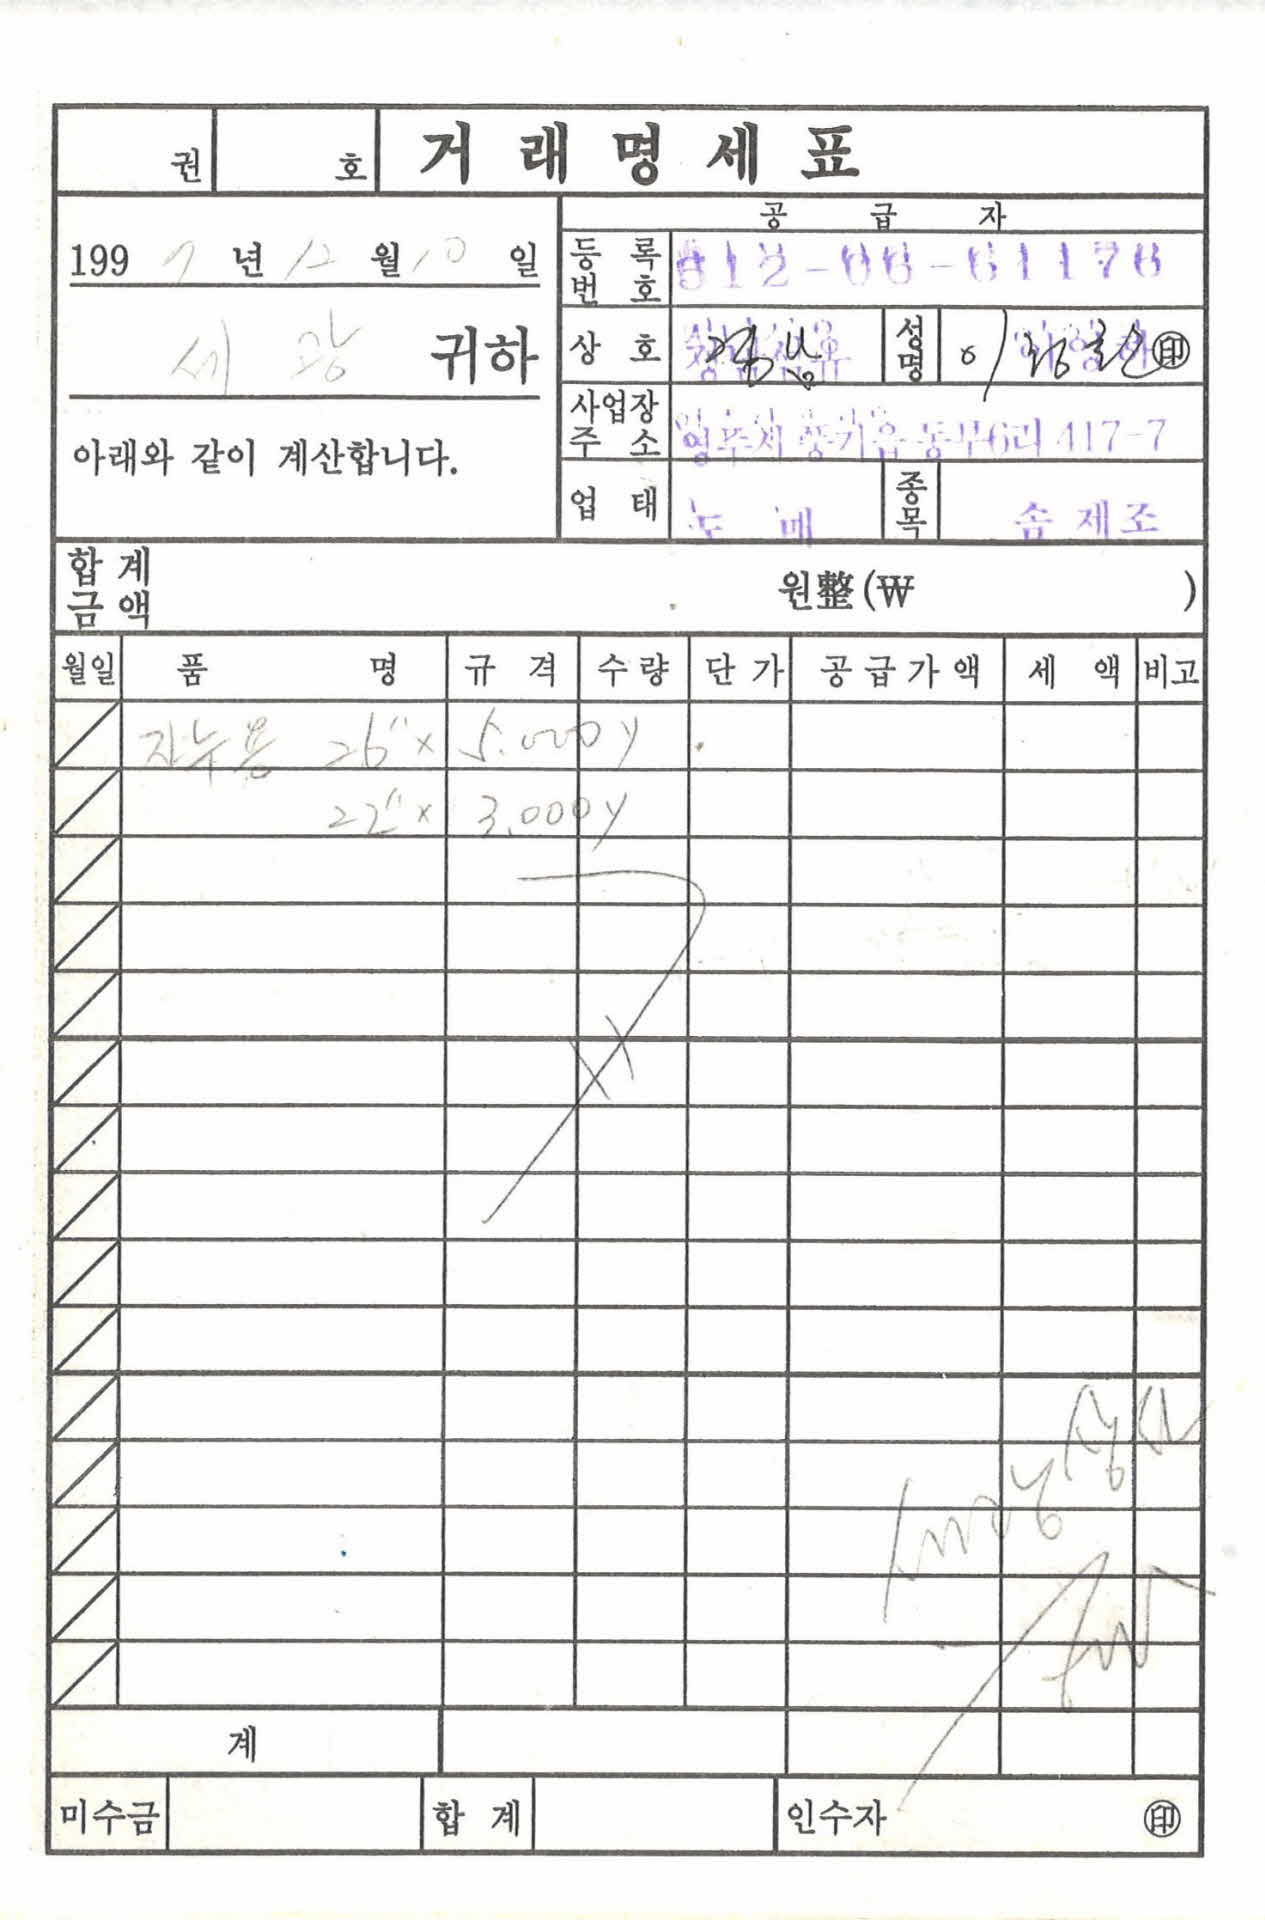 권 호 거래명세표
1997년 12월 10일
세광 귀하
아래와 같이 계산합니다.
공급자
등록번호 512-06-61176
상호 성명 이 ㊞
사업장주소 영주시 풍기읍 동부6리 417-7
업태 도매 종목 솜제조
합계금액 원整(₩ )
월일 품명 규격 수량 단가 공급가액 세액 비고
자누용 26" x 5.000y
22" x 3.000y
계
미수금 합계 인수자 ㊞